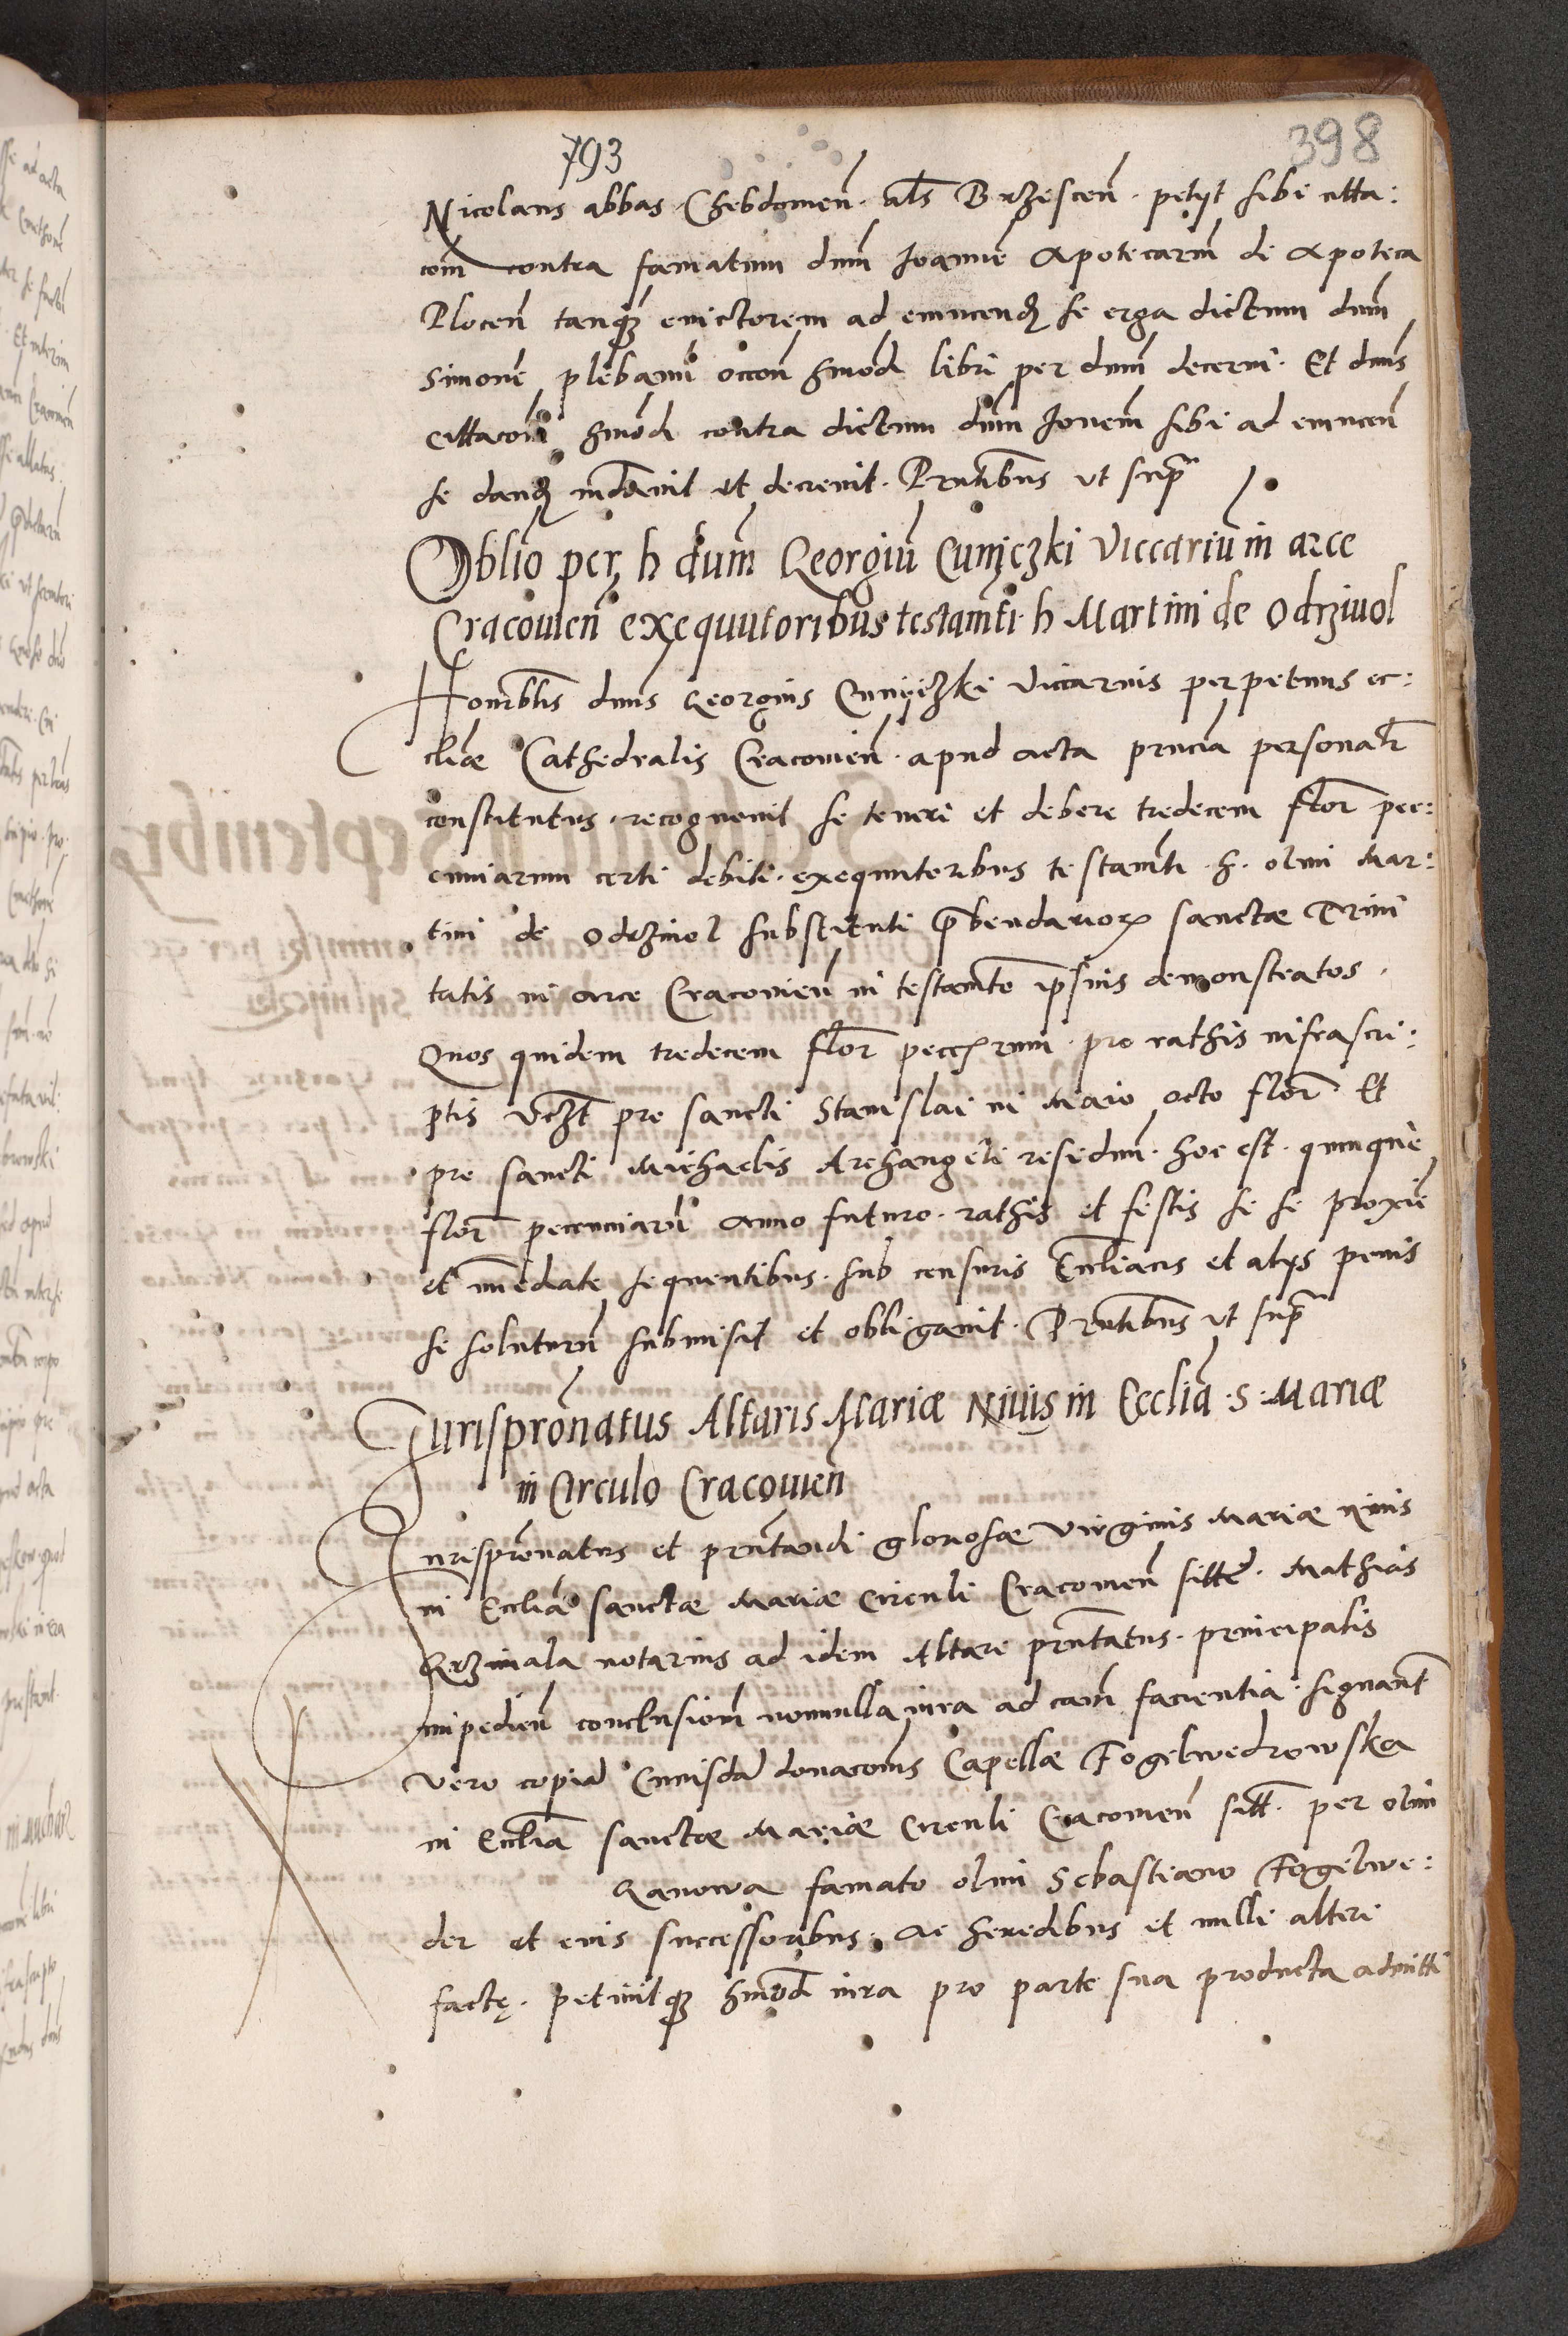 793
398
Nicolaus abbas Chebdomeñ. als Brzesceñ. petijt sibi citta:
com̃ contra famatum dnm̃ Joannẽ Apotecarm̃ de Apoteca
Ploceñ tanq̃ evictorem ad evincend se erga dictum dnm̃
Simonẽ plebanũ occoñ hmõdi libri per dnm̃ decerni. Et dnũs
cittacoñ hmõdi contra dictum dnm̃ Joneм̃ sibi ad evinceñ
se dand mdavit et decrevit. Prntibus vt supra
Oblio per h dum̃ Georgiũ Cunięczki Viccariũ in arce
Cracovieñ exequutoribus testamti h Martini de Odrziwol
Honorblis dnũs Georgius Cunijczki viccarius perpetuus ec:
cliæ Cathedralis Cracovieñ. apud acta prncia personalr
constitutus, recognovit se teneri et debere tredecem flor pec:
cuniarum certi debiti. exequutoribus testamti. h. olim Mar:
tini de Odrziwol substituti p̃bendarior sanctæ Trini
tatis in arce Cracovieñ in testamto ipsius demonstratos.
Quos quidem tredecem flor pecc rum pro rathis infrascri:
ptis vczt pro sancti Stanislai in Maio octo flor. Et
pro sancti Michaelis Archangeli residuũ. hoc est quinque
flor peccuniarũ anno futuro. rathis et festis se se proxiẽ
et imediate sequentibus. sub censuris Eccliacis et alijs penis
se soluturũ submisit et obligavit. Prntibus vt supra
Jurisprõnatus Altaris Mariæ Nivis in Ecclia .S. Mariæ
in Circulo Cracovieñ
Jurisprõnatus et prntandi gloriosæ virginis Mariæ Nivis
in Ecclia sanctæ Mariæ Circuli Cracovieñ sitte. Mathias
Grzimala notarius ad idem Altare prntatus. principalis
impedieñ conclusiom̃ nonnulla iura ad cam̃ facientia. signant
vero copiã cuiusdã donacoins Capellæ Fogelwedrowska
in Ecclia sanctæ Mariæ Circuli Cracovieñ sitt. per olim
Ganowa famato olim Sebastiano Fogelwe:
der et eius successoribus. ac heredibus et nulli alteri
factę. petivitq̃ hmõdi iura pro parte sua producta admitti